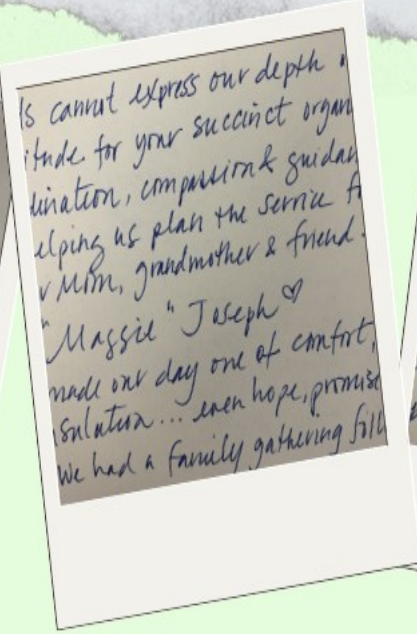 ls cannot express our depth
itude for your succinct organ
dination, compassion & guidan
elping us plan the service f
r Mom, grandmother & friend.
"Maggie" Joseph ♡
made our day one of comfort,
nsolation... even hope, promise
We had a family gathering fill